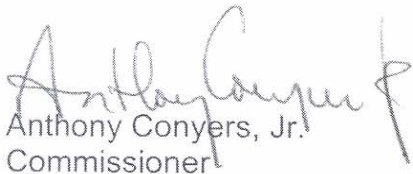 Anthony Conyers Jr
Anthony Conyers, Jr.
Commissioner